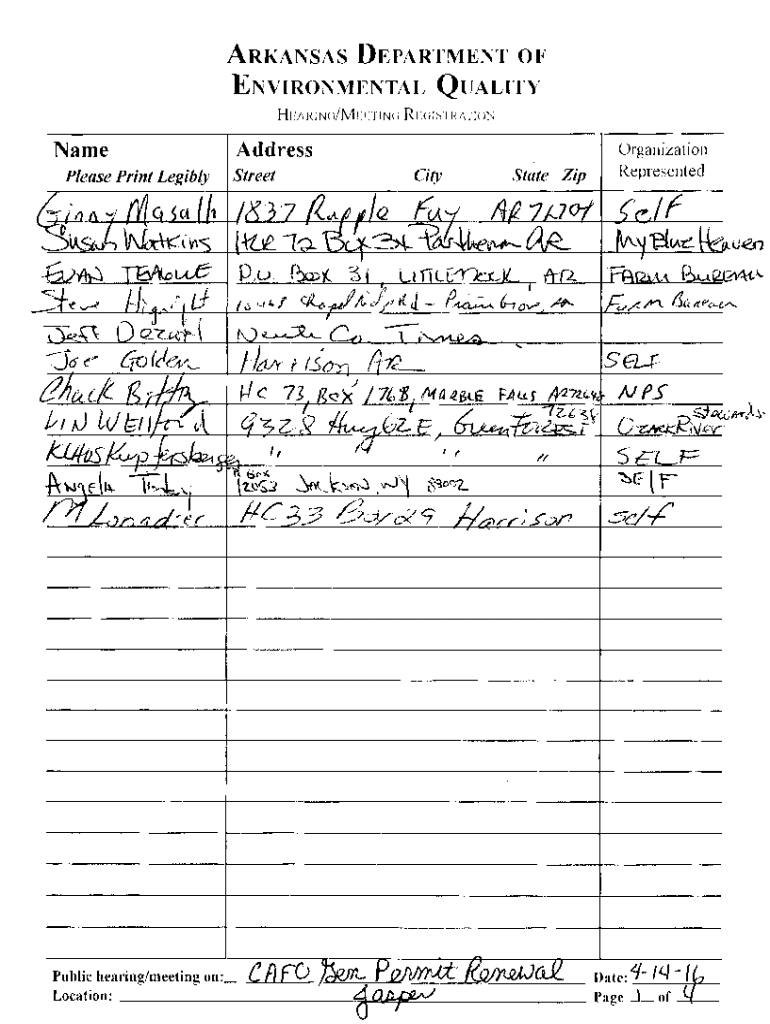 ARKANSAS DEPARTMENT OF
ENVIRONMENTAL QUALITY
HEARING/MEETING REGISTRATION
Name Address Organization
Please Print Legibly Street City State Zip Represented
Ginny Masullo 1837 Rupple Fay AR 72704 Self
Susan Watkins HCR 72 Box 34 Parthenon AR My Blue Heaven
EVAN TEAGUE P.O. Box 31, LITTLE ROCK, AR FARM BUREAU
Steve 10468 Chapel Ridge Rd - Prairie Grove, AR Farm Bureau
Jeff Newton Co. Times
Joe Golden Harrison AR SELF
Chuck Bitting HC 73, BOX 176B, MARBLE FALLS AR 72648 NPS
LIN WEllford 9328 Hwy 62 E, Green FOREST 72638 Ozark River Stewards
Klaus Kupfersberger " " " SELF
Angela P.O. Box 12053 JACKSON, WY 83002 SElF
M Lonadier HC 33 Box 29 Harrison self
Public hearing/meeting on: CAFO Gen Permit Renewal Date: 4-14-16
Location: Jasper Page 1 of 4